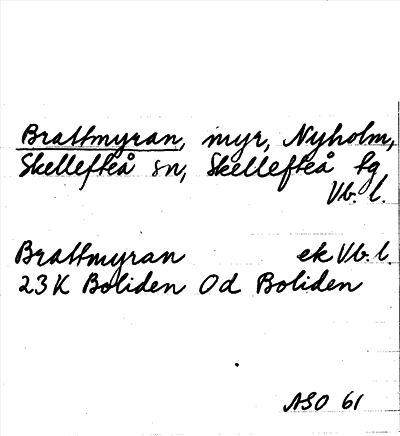 Brattmyran, myr, Nyholm,
Skellefteå sn, Skellefteå tg
Vb. l.
Brattmyran ek Vb. l.
23K Boliden 0d Boliden
ASO 61